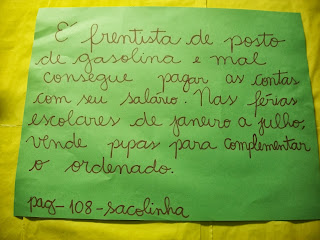 É frentista de posto
de gasolina e mal
consegue pagar as contas
com seu salário. Nas férias
escolares de janeiro a julho,
vende pipas para complementar
o ordenado.
pag-108-sacolinha